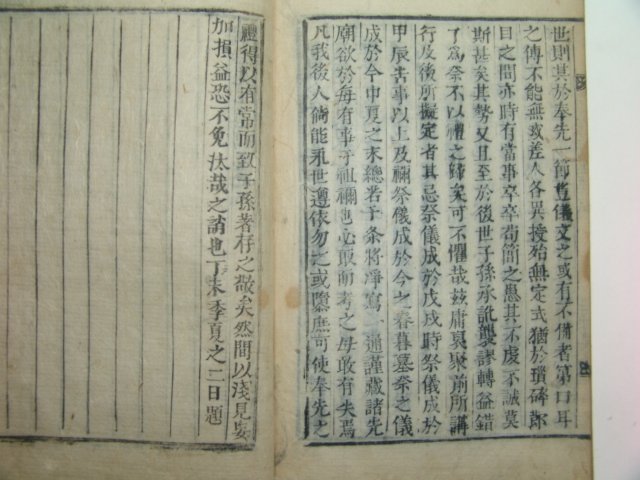 世則其於奉先一節豈儀文之或有不備者第口耳
之傳不能無或差人各異授殆無定式猶於瑣碎節
目之間亦時有當事卒卒苟簡之愚其不虔不誠莫
斯甚矣其勢又且至於後世子孫承訛襲謬轉益錯
了爲祭不以禮之歸矣可不懼哉玆庸裒聚前所講
行及後所擬定者其忌祭儀成於戊戌時祭儀成於
甲辰告事以上及禰祭儀成於今之春暮墓祭之儀
成於今中夏之末總若于條將淨寫一通謹藏諸先
廟欲於每有事于祖禰也必取而考之毋敢有失焉
凡我後人倘能承世遵依勿之或隳庶可使奉先之
禮得以有常而致子孫著存之敬矣然間以淺見妄
加損益恐不免汰哉之誚也丁未季夏之二日題